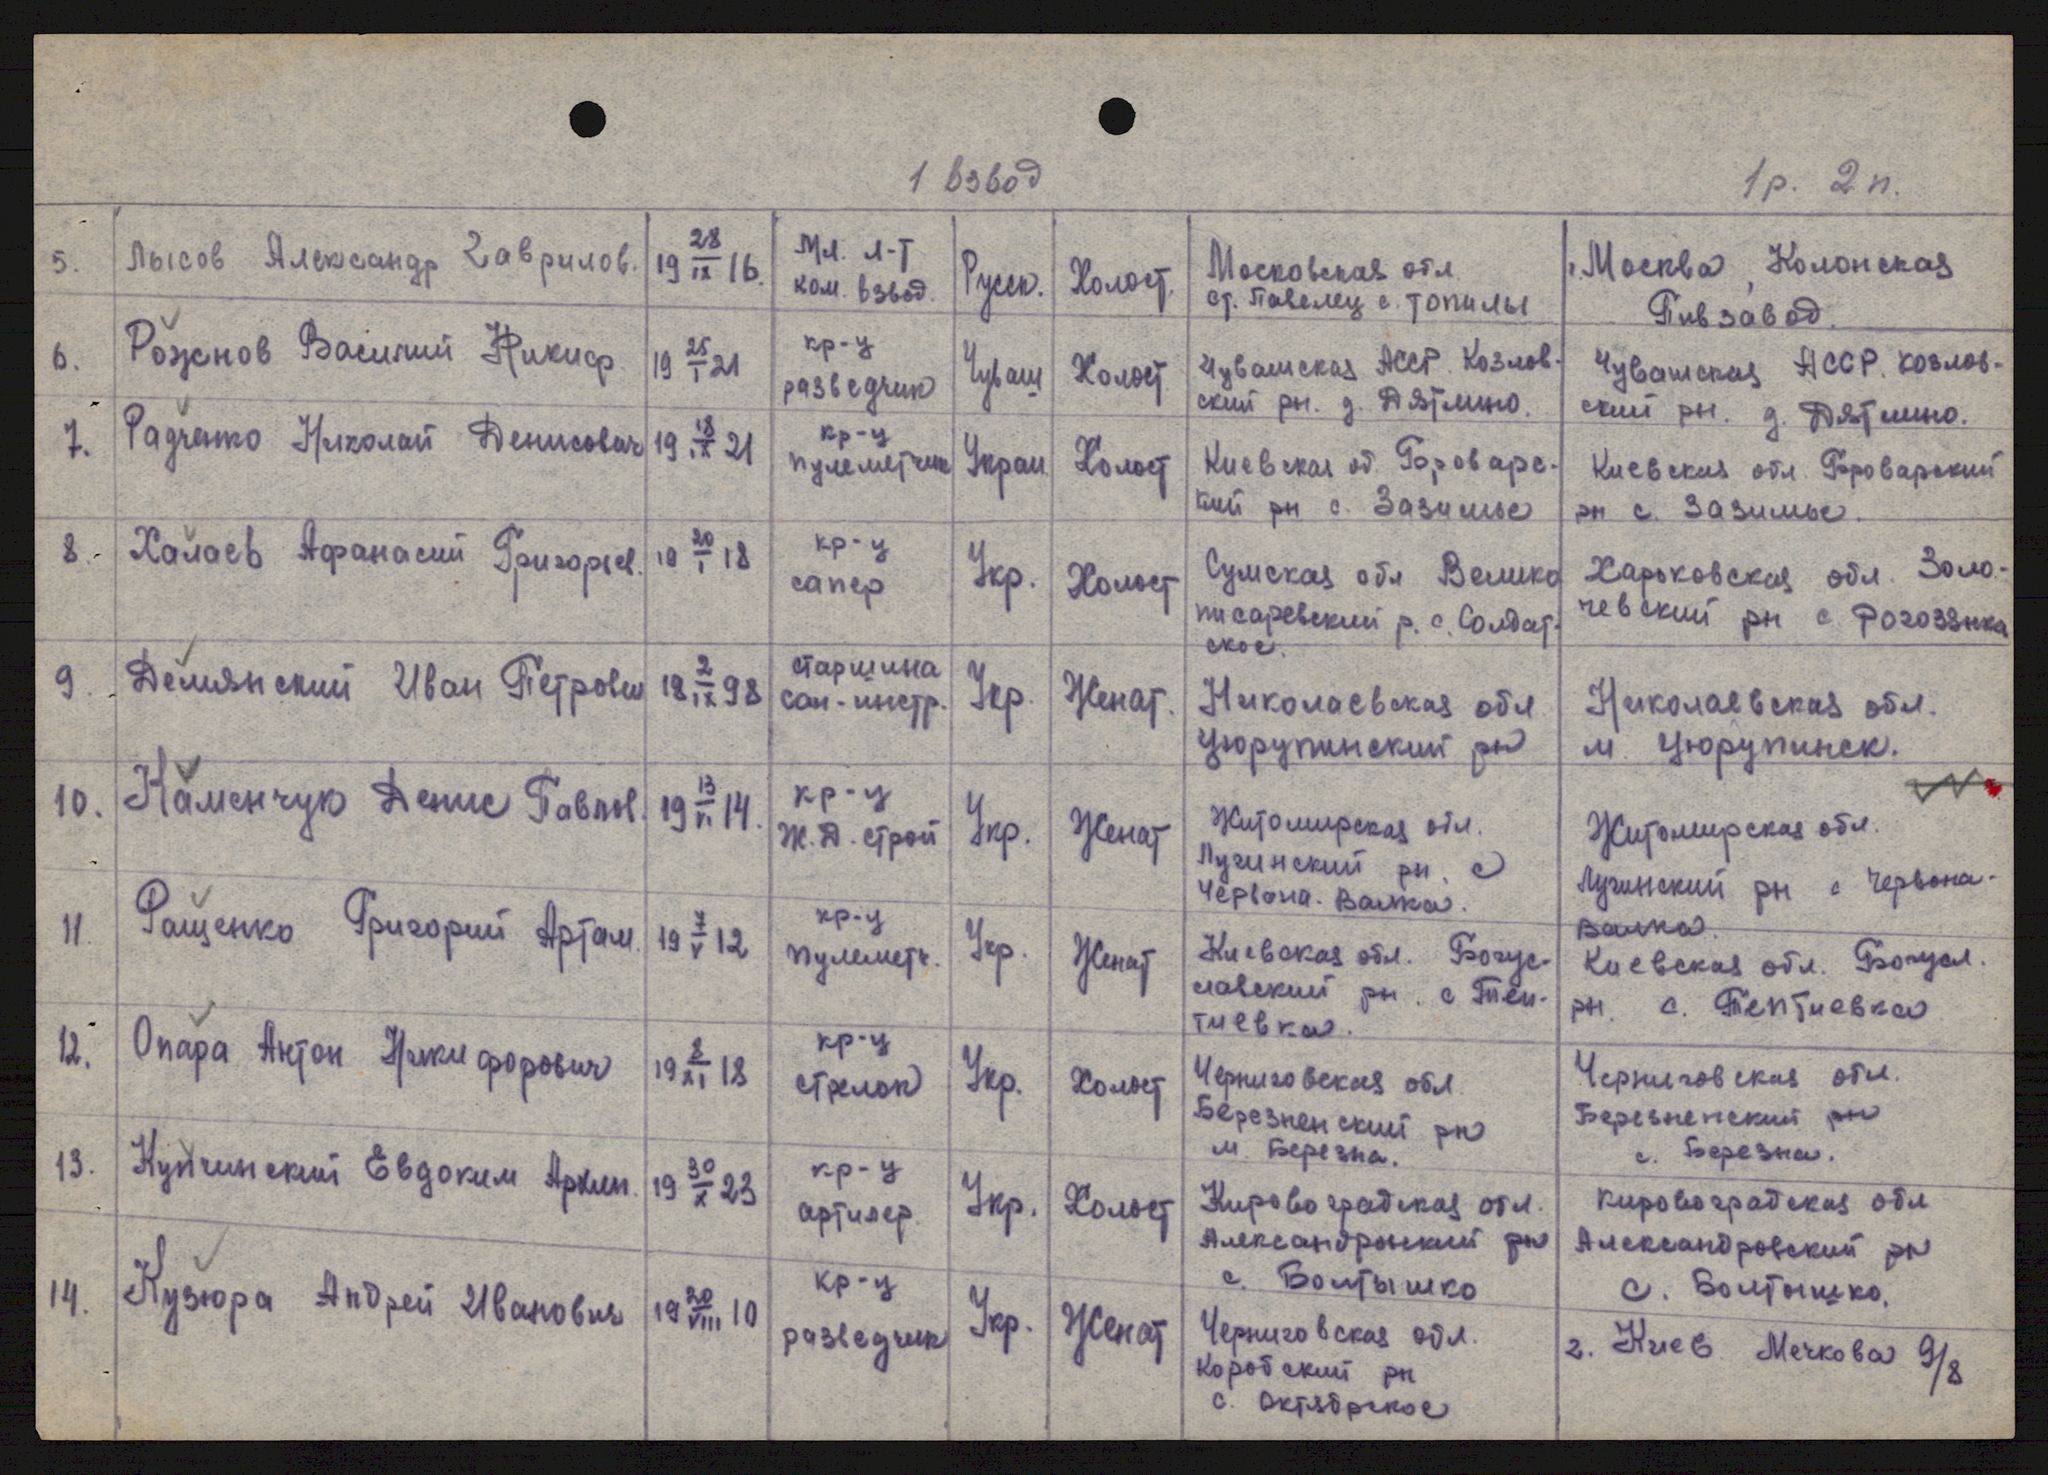 1 взвод 1 р. 2 п.
5. Лысов Александр Гаврилов. 19 28/IX 16. Мл. л-т ком. взвод. Русск. Холост. Московская обл. ст. Павелец с. Топилы Москва, Колонская Пивзавод.
6. Рожнов Василий Никиф. 19 25/I 21 кр-ц разведчик Чуваш Холост Чувашская АССР. Козловский рн. д. Дятлино. Чувашская АССР. Козловский рн. д. Дятлино.
7. Радченко Николай Денисович 19 18/IX 21 кр-ц пулеметчик Украи Холост Киевская об. Броварский рн с. Зазимье Киевская обл. Броварский рн с. Зазимье.
8. Халаев Афанасий Григорьев. 19 20/I 18 кр-ц сапер Укр. Холост Сумская обл Велико писаревский р. с. Солдатское. Харьковская обл. Золочевский рн с Рогозянка
9. Демянский Иван Петрович 18 2/IX 98 старшина сан-инстр. Укр. Женат. Николаевская обл. Цюрупинский рн Николаевская обл. м. Цюрупинск.
10. Каменчук Денис Павлов. 19 13/VI 14. кр-ц Ж.Д. строй Укр. Женат Житомирская обл. Лугинский рн. с Червона-Валка. Житомирская обл. Лугинский рн с Червона-Валка.
11. Ращенко Григорий Артам. 19 7/V 12 кр-ц пулеметч. Укр. Женат Киевская обл. Богуславский рн. с Тептиевка. Киевская обл. Богусл. рн. с. Тептиевка
12. Опара Антон Никифорович 19 8/XI 18 кр-ц стрелок Укр. Холост Черниговская обл. Березненский рн м. Березна. Черниговская обл. Березненский рн с. Березна.
13. Купчинский Евдоким Архип. 19 30/X 23 кр-ц артилер. Укр. Холост Кировоградская обл. Александровский рн с. Болтышко Кировоградская обл Александровский рн с. Болтышко.
14. Кузюра Андрей Иванович 19 20/VIII 10 кр-ц разведчик Укр. Женат Черниговская обл. Коробский рн с. Октябрское г. Киев Мечкова 9/8